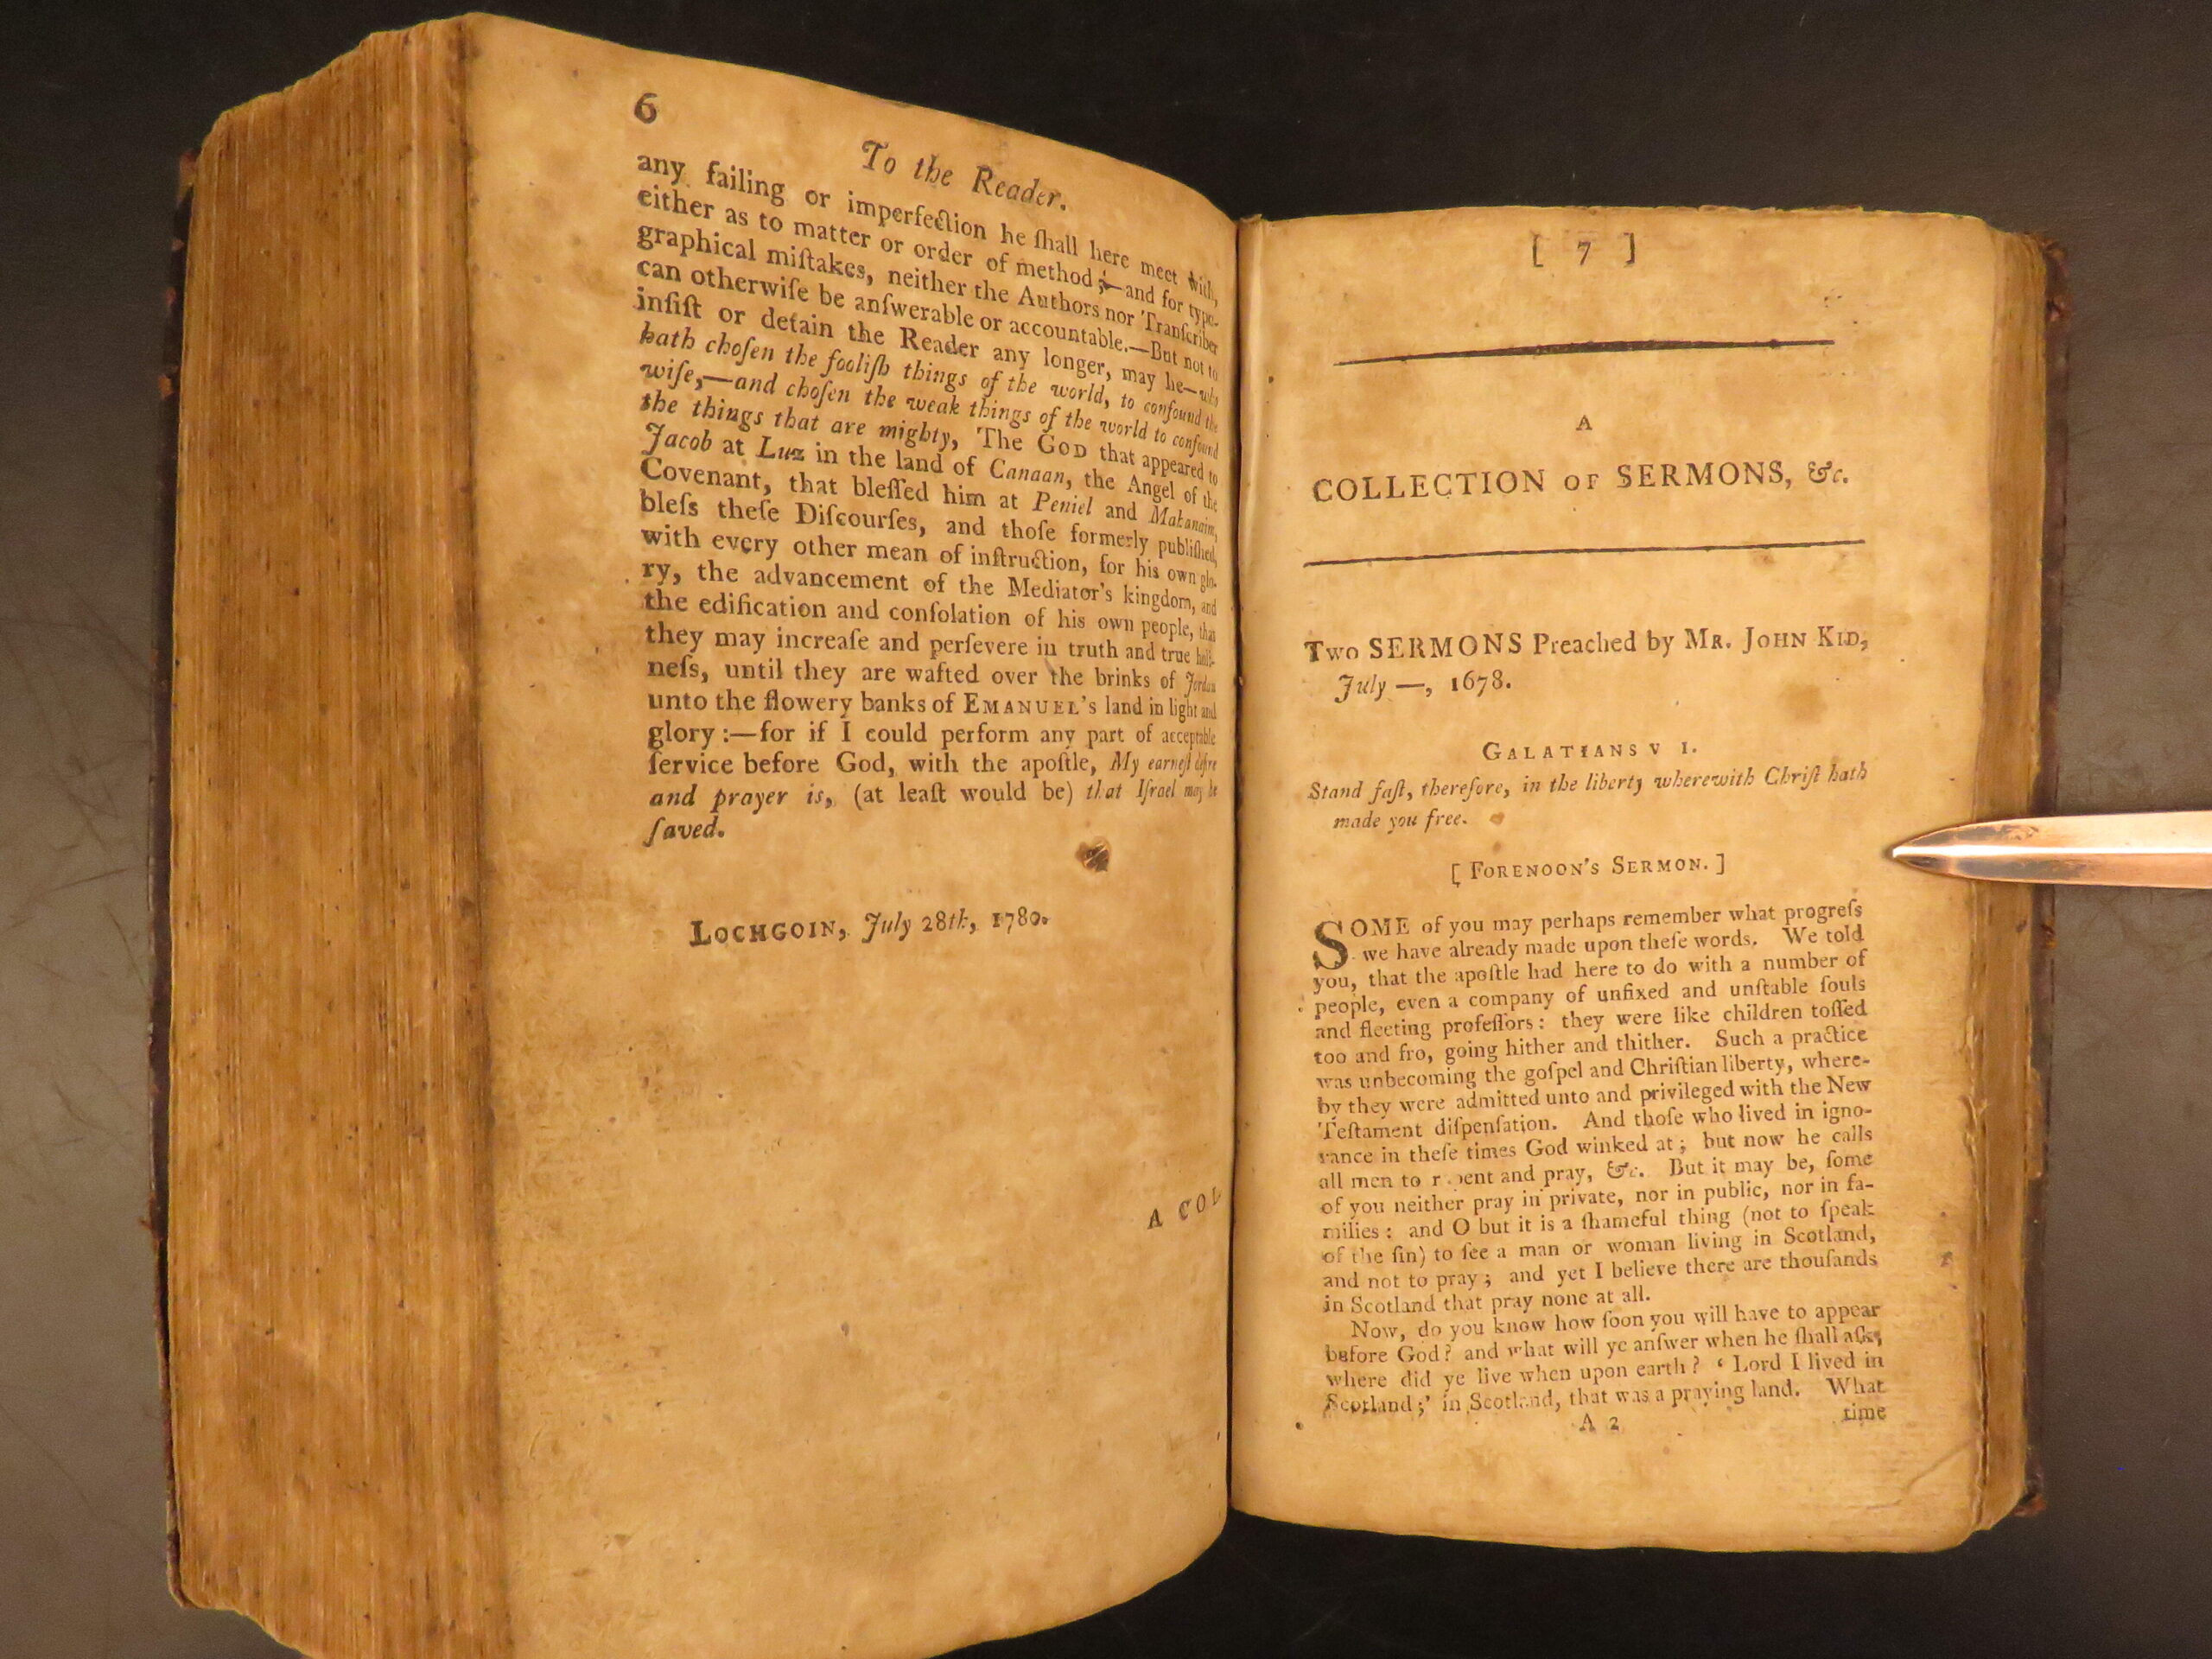 6
To the Reader.
any failing or imperfection he ſhall here meet with,
either as to matter or order of method;—and for typo-
graphical miſtakes, neither the Authors nor Tranſcriber
can otherwiſe be anſwerable or accountable.—But not to
inſiſt or detain the Reader any longer, may he—who
hath choſen the fooliſh things of the world, to confound the
wiſe,—and choſen the weak things of the world to confound
the things that are mighty, The GOD that appeared to
Jacob at Luz in the land of Canaan, the Angel of the
Covenant, that bleſſed him at Peniel and Mahanaim,
bleſs theſe Diſcourſes, and thoſe formerly publiſhed,
with every other mean of inſtruction, for his own glo-
ry, the advancement of the Mediator's kingdom, and
the edification and conſolation of his own people, that
they may increaſe and perſevere in truth and true holi-
neſs, until they are wafted over the brinks of Jordan
unto the flowery banks of EMANUEL's land in light and
glory:—for if I could perform any part of acceptable
ſervice before God, with the apoſtle, My earneſt deſire
and prayer is, (at leaſt would be) that Iſrael may be
ſaved.
LOCHGOIN, July 28th, 1780.
A COL
[ 7 ]
A
COLLECTION OF SERMONS, &c.
Two SERMONS Preached by MR. JOHN KID,
July —, 1678.
GALATIANS V 1.
Stand faſt, therefore, in the liberty wherewith Chriſt hath
made you free.
[ FORENOON'S SERMON. ]
SOME of you may perhaps remember what progreſs
we have already made upon theſe words. We told
you, that the apoſtle had here to do with a number of
people, even a company of unfixed and unſtable ſouls
and fleeting profeſſors: they were like children toſſed
too and fro, going hither and thither. Such a practice
was unbecoming the goſpel and Chriſtian liberty, where-
by they were admitted unto and privileged with the New
Teſtament diſpenſation. And thoſe who lived in igno-
rance in theſe times God winked at; but now he calls
all men to repent and pray, &c. But it may be, ſome
of you neither pray in private, nor in public, nor in fa-
milies: and O but it is a ſhameful thing (not to ſpeak
of the ſin) to ſee a man or woman living in Scotland,
and not to pray; and yet I believe there are thouſands
in Scotland that pray none at all.
Now, do you know how ſoon you will have to appear
before God? and what will ye anſwer when he ſhall aſk,
where did ye live when upon earth? ‘ Lord I lived in
Scotland;’ in Scotland, that was a praying land. What
A 2
time